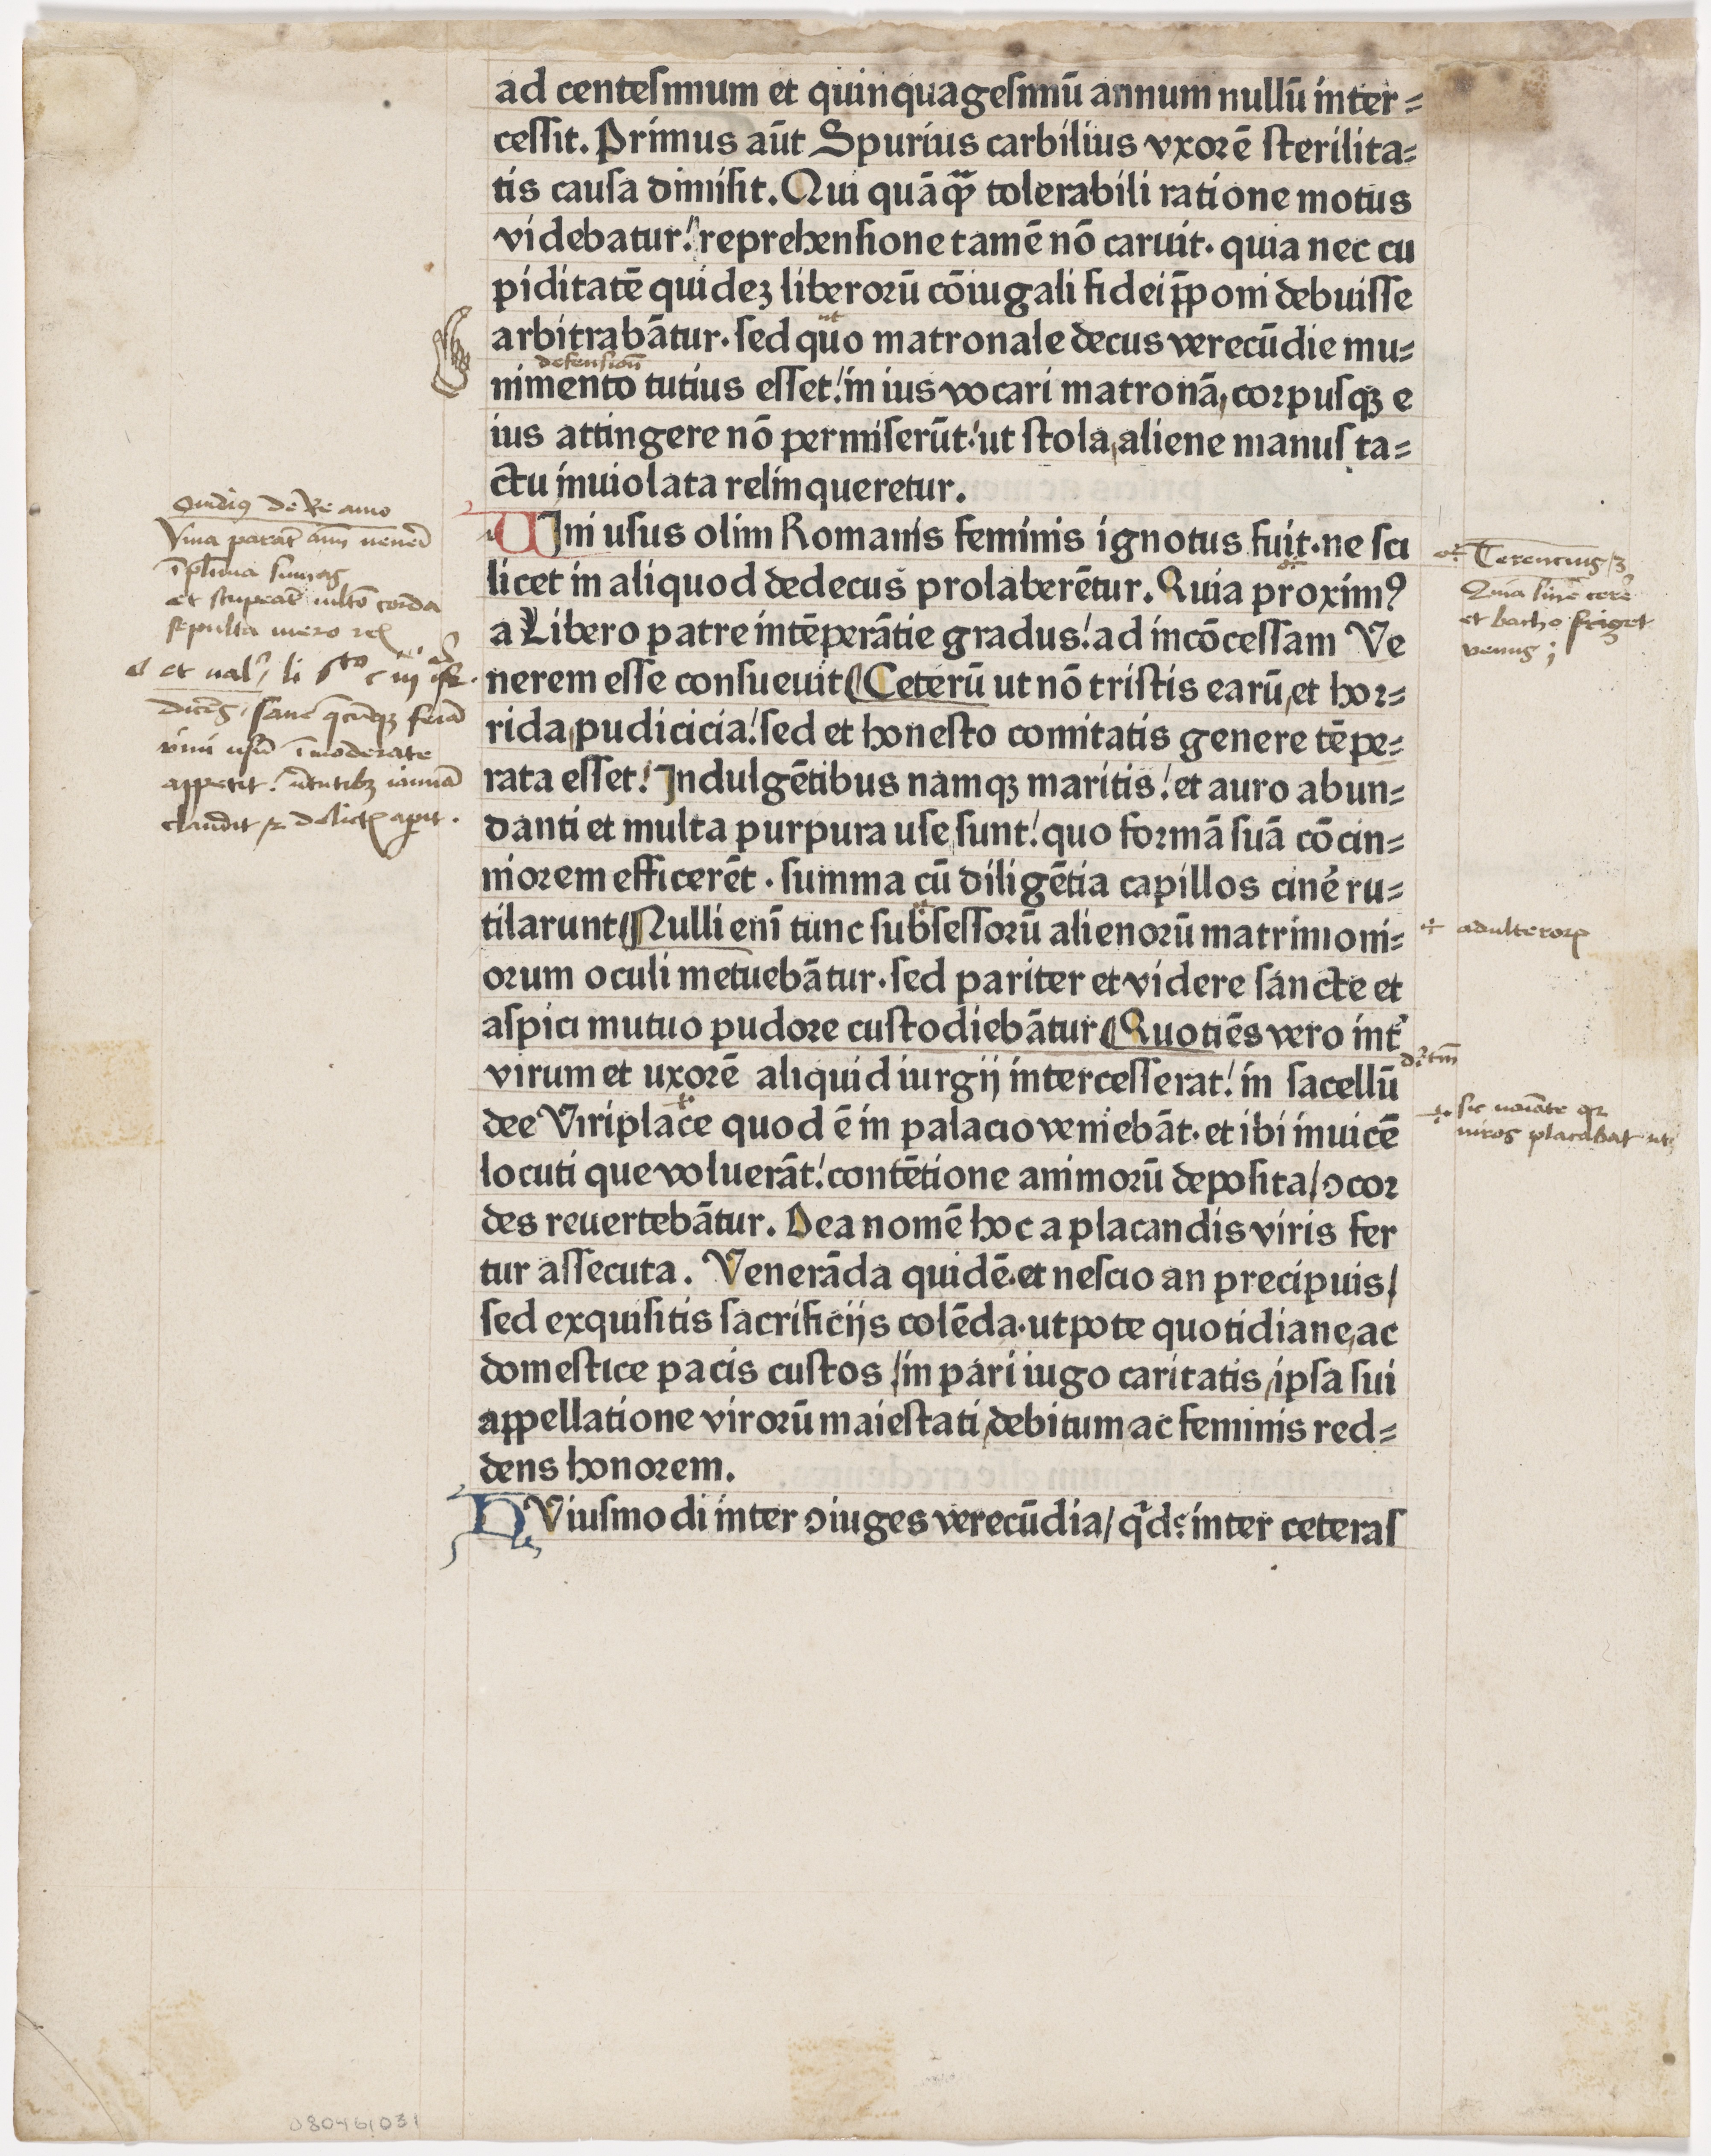 ad centesimum et quinquagesimū annum nullū inter=
cessit. Primus aūt Spurius carbilius vxorē sterilita=
tis causa dimisit. Qui quāqȝ tolerabili ratione motus
videbatur: reprehensione tamē nō caruit. quia nec cu
piditatē quidez liberorū cōiugali fidei p̄poni debuisse
ut
arbitrabātur. sed quo matronale decus verecūdie mu=
defensiōn
nimento tutius esset: in ius vocari matronā, corpusqȝ e
ius attingere nō permiserūt: ut stola, aliene manus ta=
ctu inuiolata relinqueretur.
VIni usus olim Romanis feminis ignotus fuit. ne sci
licet in aliquod dedecus prolaberētur. Quia proximꝰ
a Libero patre intēperātie gradus: ad incōcessam Ve
nerem esse consueuit (Ceterū ut nō tristis earū, et hor=
rida, pudicicia: sed et honesto comitatis genere tēpe=
rata esset: Indulgētibus namqȝ maritis: et auro abun=
danti et multa purpura use sunt: quo formā suā cōcin=
niorem efficerēt. summa cū diligētia capillos cinē ru=
tilarunt (Nulli enī tunc subsessorū alienorū matrimoni=
orum oculi metuebātur. sed pariter et videre sancte et
aspici mutuo pudore custodiebātur (Quotiēs vero int̄
virum et uxorē aliquid iurgij intercesserat: in sacellū
dee Viriplace quod ē in palacio veniebāt. et ibi inuicē
locuti que voluerāt: contētione animorū deposita/ ↄcor
des reuertebātur. Dea nomē hoc a placandis viris fer
tur assecuta. Venerāda quidē. et nescio an precipuis/
sed exquisitis sacrificijs colēda. utpote quotidiane, ac
domestice pacis custos /in pari iugo caritatis, ipsa sui
appellatione virorū maiestati, debitum, ac feminis red=
dens honorem.
HViusmodi inter ↄiuges verecūdia/ qd̄: inter ceteras
Ouidiꝰ de Re amo
Vina parāt aīm veneri
nīsi plurima sumas
et stupeāt multo corda
sepulta mero
sane
vini usū īmoderate
appetit: virtutibȝ ianuā
claudit
Terencius
Quia sine cere
et bacho friget
venus
adulterorꝝ
sic
viros placabat
080461031